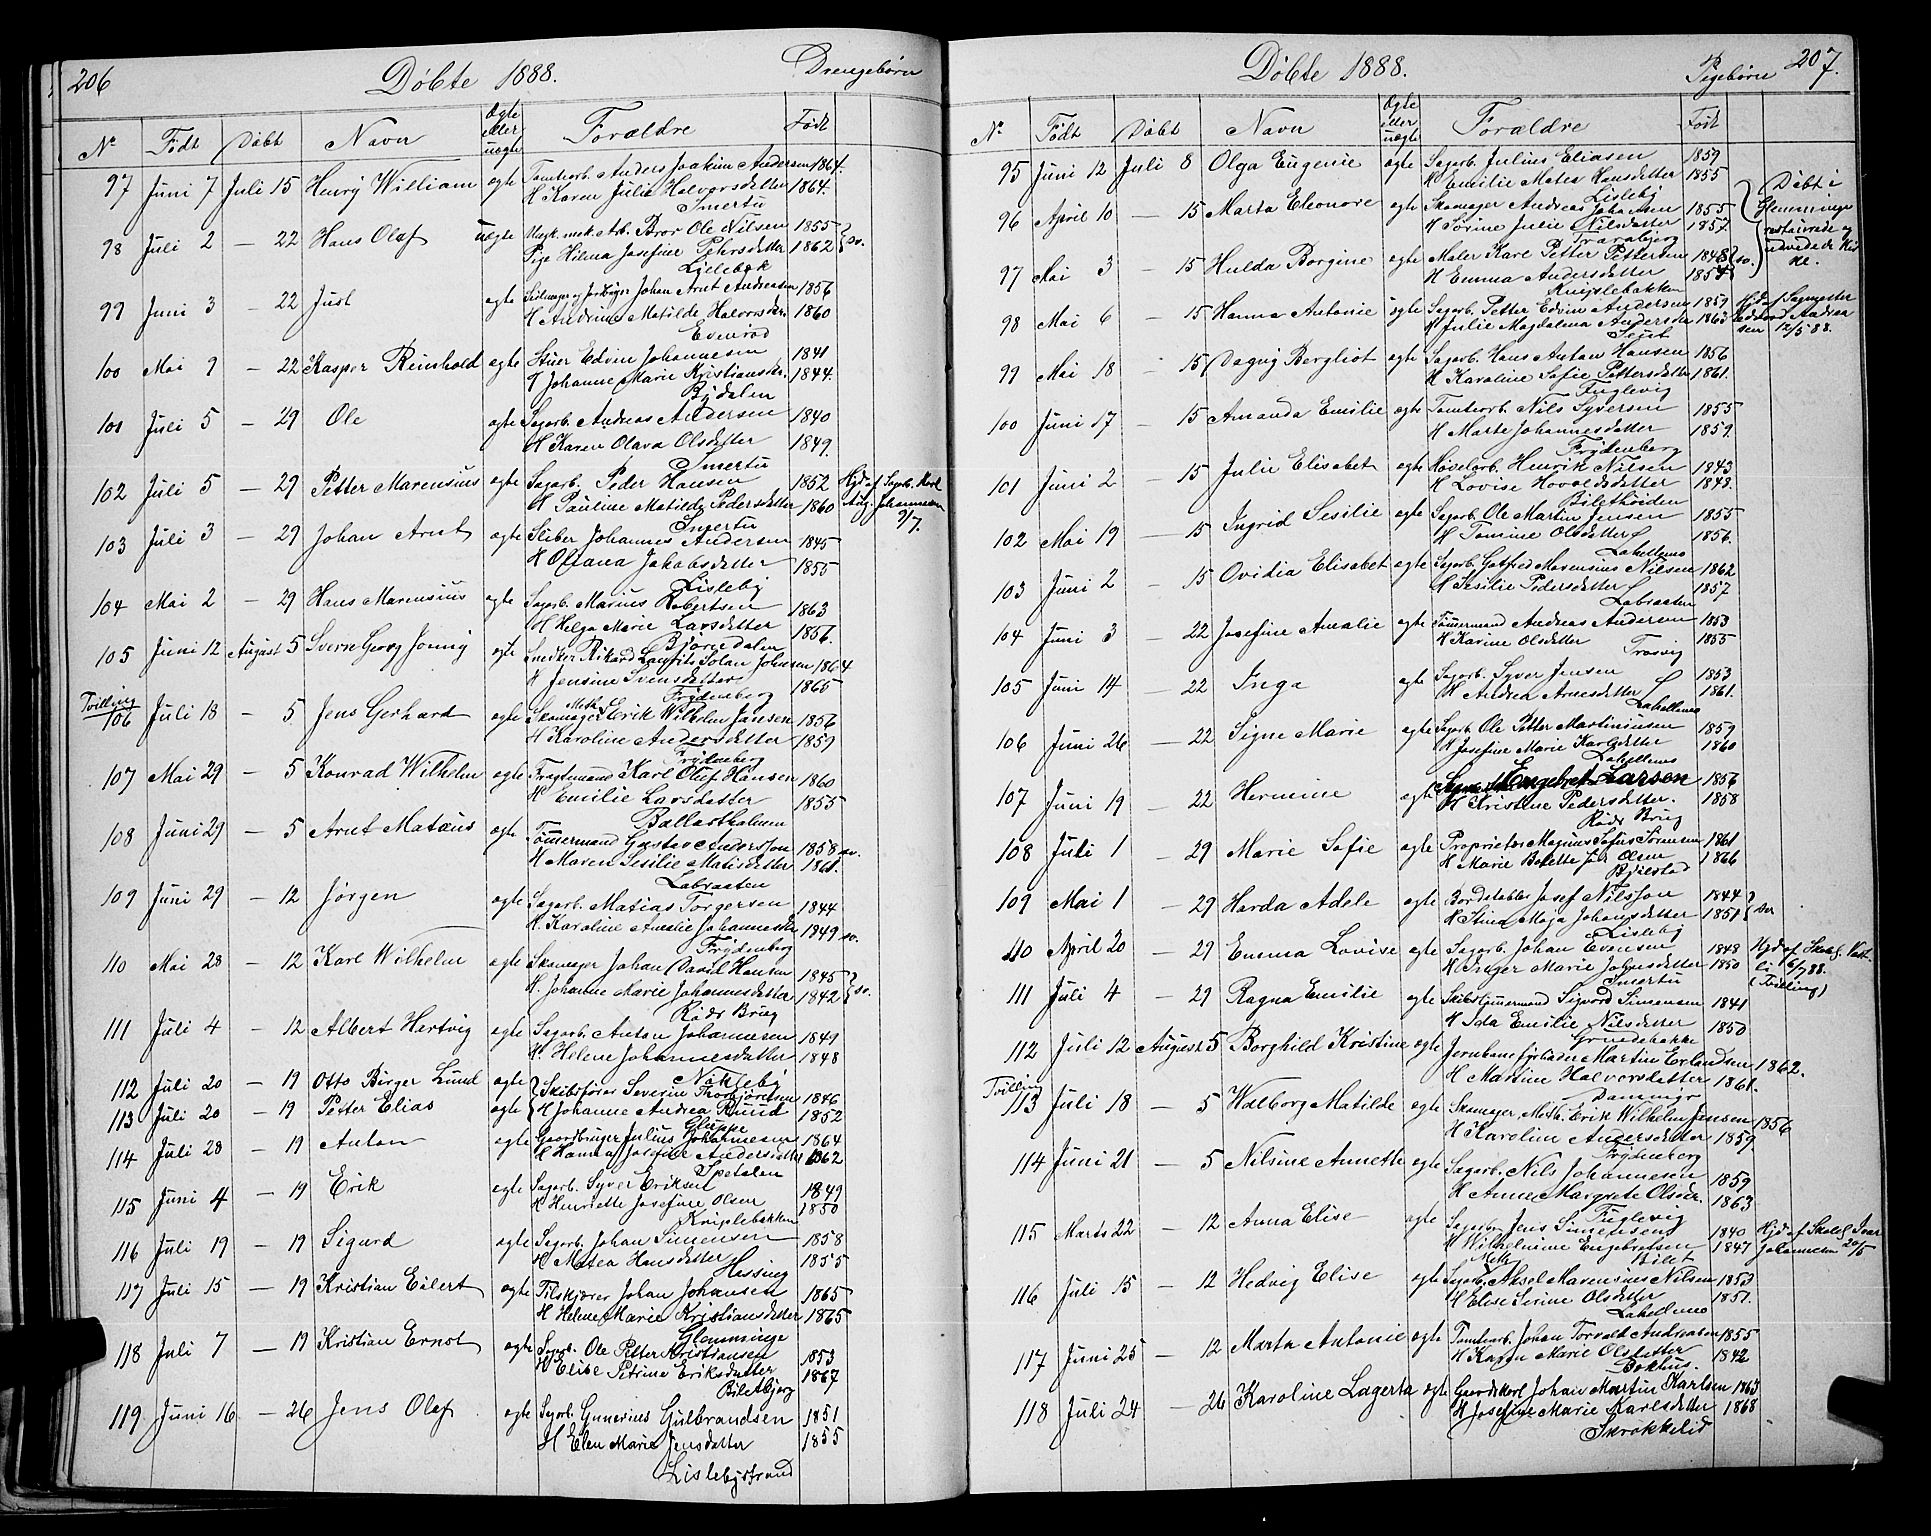 206 Döbte 1888. Drengebörn
No Födt Döbt Navn Ægte eller uægte Forældre Födt
97 Juni 7 Juli 15 Henry William ægte Tomtearb. Anders Joakim Andersen 1864.
H Karen Julie Halvorsdatter 1864.
Smertu
98 Juli 2 — 22 Hans Olaf uægte Ungk. mek. Arb. Bror Ole Nilsen 1855
Pige Hilma Josefine Pehrsdatter 1862 } sv.
Lislebök
99 Juni 3 — 22 Just ægte Johan Arnt Andreasen 1856
H Andrine Matilde Halvorsdatter 1860
Evenröd
100 Mai 9 — 22 Kasper Reinhold ægte Stuer Edvin Johannesen 1841
H Johanne Marie Kristiansdr. 1844.
Bydalen
101 Juli 5 — 29 Ole ægte Sagarb. Andreas Andersen 1840
H Karen Olava Olsdatter 1849.
Smertu
102 Juli 5 — 29 Petter Marensius ægte Sagarb. Peder Hansen 1852 Hjd. af Sagarb. Karl
H Pauline Matilde Pedersdatter 1860 Aug. Johannesen
Smertu 9/7.
103 Juli 3 — 29 Johan Arnt ægte Sliber Johannes Andersen 1845
H Oliana Jakobsdatter 1855
Lisleby
104 Mai 2 — 29 Hans Marensius ægte Sagarb. Marius Robertsen 1863
H Helga Marie Larsdatter 1856.
Bjørnedalen
105 Juni 12 August 5 Sverre Georg Jonny ægte Snedker Rikard Laurits Solan Johnsen 1864
H Jensine Svensdatter 1865
Frydenberg
Tvilling
106 Juli 18 — 5 Jens Gerhard ægte Skomager Meth. Erik Wilhelm Jansen 1856
H Karoline Andersdatter 1859
Frydenberg
107 Mai 29 — 5 Konrad Wilhelm ægte Fragtmand Karl Oluf Hansen 1860
H Emilie Larsdatter 1855
Ballastholmen
108 Juni 29 — 5 Arnt Matæus ægte Tömmermand Gustav Andersson 1858 sv.
H Maren Sesilie Matisdatter 1861.
Labraaten
109 Juni 29 — 12 Jörgen ægte Sagarb. Matias Torgersen 1844
H. Karoline Amalie Johannesdr. 1849 sv.
Frydenberg
110 Mai 28 — 12 Karl Wilhelm ægte Skomager Johan David Hansen 1845
H. Johanne Marie Johannesdatter 1842 } sv.
Röds Brug
111 Juli 4 — 12 Albert Hartvig ægte Sagarb. Anton Johannesen 1849
H. Helene Johannesdatter 1848
Nökleby
112 Juli 20 — 19 Otto Birger Lund ægte { Skibsförer Severin Thorbjörnsen 1846
113 Juli 20 — 19 Petter Elias ægte { H Johanne Andrea Ruud 1852
Gluppe
114 Juli 28 — 19 Anton ægte Gaardbruger Julius Johannesen 1864
H Hanna Josefine Andersdatter 1862
Spetalen
115 Juni 4 — 19 Erik ægte Sagarb. Syver Eriksen 1849
H Henriette Josefine Olsen 1850
Kniplebakken
116 Juli 19 — 19 Sigurd ægte Sagarb. Johan Simensen 1858
H Matea Hansdatter 1855
Hassing
117 Juli 15 — 19 Kristian Eilert ægte Filskjærer Johan Johansen 1865
H Helene Marie Kristiansdatter 1865
Glemminge
118 Juli 7 — 19 Kristian Ernst ægte Sagarb. Ole Petter Kristiansen 1853
H Elise Petrine Eriksdatter 1867
Biletbjerg
119 Juni 16 — 26 Jens Olaf ægte Sagarb. Gunerius Gulbrandsen 1851
H Elen Marie Jensdatter 1855
Lislebystrand
Döbte 1888. Pigebörn 207.
No Födt Döbt Navn Ægte eller uægte Forældre Födt
95 Juni 12 Juli 8 Olga Eugenie ægte Sagarb. Julius Eliasen 1859
H Emilie Matea Hansdatter 1855
Lisleby
96 April 10 — 15 Marta Eleonore ægte Skomager Andreas Johansen 1855
H Sörine Julie Nilsdatter 1857.
Traraberg
97 Mai 3 — 15 Hulda Borgine ægte Maler Karl Petter Pettersen 1848 } sv.
H Emma Andersdatter 1854
Kniplebakken
Döbt i Glemminge restaurede og udvidede Kirke.
98 Mai 6 — 15 Hanna Antonie ægte Sagarb. Petter Edvin Andersen 1859 Hjd. af Sagmester
H Julie Magdalena Andersdr. 1863 Edvard Andreasen
12/5 88.
99 Mai 18 — 15 Dagny Bergliot ægte Sagarb. Hans Anton Hansen 1856
H Karoline Sofie Pettersdatter 1861.
Fuglevig
100 Juni 17 — 15 Amanda Emilie ægte Tomtearb. Nils Syversen 1855
H Marte Johannesdatter 1859.
Frydenberg
101 Juni 2 — 15 Julie Elisabet ægte Hövelarb. Henrik Nilsen 1843
H Lovise Hovaldsdatter 1843.
Bilethöiden
102 Mai 19 — 15 Ingrid Sesilie ægte Sagarb. Ole Martin Jensen 1855
H Tomine Olsdatter 1856.
Lahellemo
103 Juni 2 — 15 Ovidia Elisabet ægte Sagarb. Gotfred Marensius Nilsen 1862
H Sesilie Pedersdatter 1857
Labraaten
104 Juni 3 — 22 Josefine Amalie ægte Tömmermand Andreas Andersen 1853
H Karine Olsdatter 1855
Trosvig
105 Juni 14 — 22 Inga ægte Sagarb. Syver Jensen 1853
H Andrea Arnesdatter 1861.
Lahellemo
106 Juni 26 — 22 Signe Marie ægte Sagarb. Ole Petter Martinsen 1859
H Josefine Marie Karlsdatter 1860
Lahellemo
107 Juni 19 — 22 Hermine ægte Engebret Larsen 1856
H Kristine Pedersdatter. 1858
Röds Brug
108 Juli 1 — 29 Marie Sofie ægte Proprietær Magnus Sofus Sörensen 1861
H Marie Betette f. Olsen 1866
Bjölstad
109 Mai 1 — 29 Harda Adele ægte Bordstabler Josef Nilsson 1844
H Stina Maja Johansdatter 1851 } sv
Lisleby
110 April 20 — 29 Emma Lovise ægte Sagarb. Johan Evensen 1848 Hjd. af Skolel. Vast-
H Inger Marie Johnsdatter 1850 li 6/7 88.
Smertu (Tvilling)
111 Juli 4 — 29 Ragna Emilie ægte Skibstömmermand Sigvard Simensen 1841
H Ida Emilie Nilsdatter 1850
Grundebakke
112 Juli 12 August 5 Borghild Kristine ægte Jernbanearbeider Martin Erlandsen 1862.
H Martine Halvorsdatter 1861.
Dammyr
Tvilling
113 Juli 18 — 5 Walborg Matilde ægte Skomager, Meth. Erik Wilhelm Jansen 1856
H Karoline Andersdatter 1859.
Frydenberg
114 Juni 21 — 5 Nilsine Annette ægte Sagarb. Nils Johannesen 1859
H Anne Margrete Olsdr. 1863
Fuglevig
115 Marts 22 — 12 Anna Elise ægte Sagarb. Jens Simensen 1840 Hjd. af Skolel. Ivar
H Wilhelmine Engebretsen 1847 Johannesen 20/5
Bilet
116 Juli 15 — 12 Hedvig Elise ægte Sagarb. Meth. Aksel Marensius Nilsen 1853
H Elise Sirine Olsdatter 1851.
Lahellemo
117 Juni 25 — 12 Marta Antonie ægte Tomtearb. Johan Torvald Andreasen 1855
H Karen Marie Olsdatter 1842
Bakhus.
118 Juli 24 — 26 Karoline Lagerta ægte Gaardskarl Johan Martin Karlsen 1863
H Josefine Marie Karlsdatter 1868
Skrökkelid